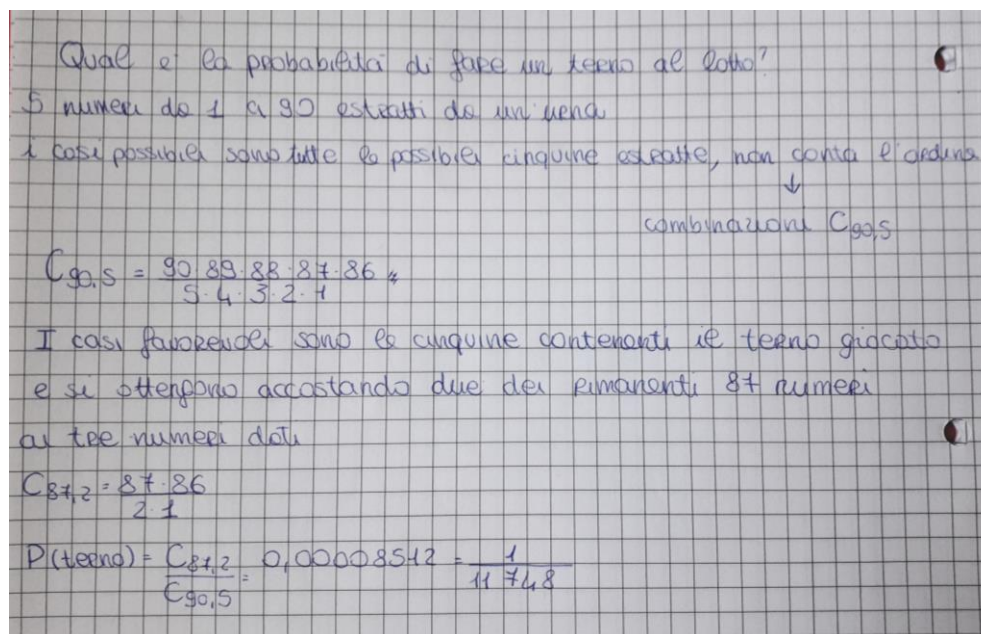 Qual e' la probabilità di fare un terno al lotto?
5 numeri da 1 a 90 estratti da un'urna
i casi possibili sono tutte le possibili cinquine estratte, non conta l'ordine
↓
combinazioni C90,5
C90,5 = 90·89·88·87·86 / 5·4·3·2·1
I casi favorevoli sono le cinquine contenenti il terno giocato
e si ottengono accostando due dei rimanenti 87 numeri
ai tre numeri dati
C87,2 = 87·86 / 2·1
P(terno) = C87,2 / C90,5 = 0,00008512 = 1 / 11 748